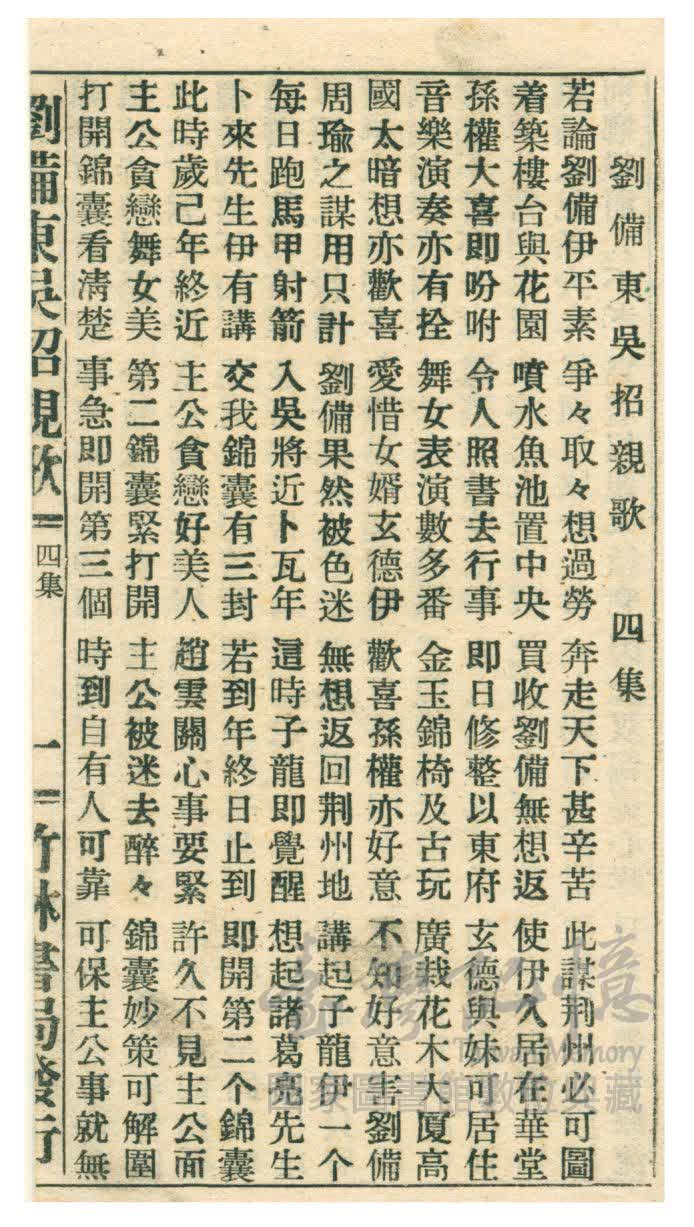 劉備東吳招親歌 四集
若論劉備伊平素 爭々取々想過勞 奔走天下甚辛苦 此謀荆州必可圖
着築樓台與花園 噴水魚池置中央 買收劉備無想返 使伊久居在華堂
孫權大喜即吩咐 令人照書去行事 即日修整以東府 玄德與妹可居住
音樂演奏亦有拴 舞女表演數多番 金玉錦椅及古玩 廣栽花木大厦高
國太暗想亦歡喜 愛惜女婿玄德伊 歡喜孫權亦好意 不知好意害劉備
周瑜之謀用只計 劉備果然被色迷 無想返回荆州地 講起子龍伊一个
每日跑馬甲射箭 入吳將近卜瓦年 這時子龍即覺醒 想起諸葛亮先生
卜來先生伊有講 交我錦囊有三封 若到年終日止到 即開第二个錦囊
此時歲己年終近 主公貪戀好美人 趙雲關心事要緊 許久不見主公面
主公貪戀舞女美 第二錦囊緊打開 主公被迷去醉々 錦囊妙策可解圍
打開錦囊看淸楚 事急即開第三個 時到自有人可靠 可保主公事就無
劉備東吳招親歌 四集 一 竹林書局發行
臺灣記憶
Taiwan Memory
國家圖書館數位典藏